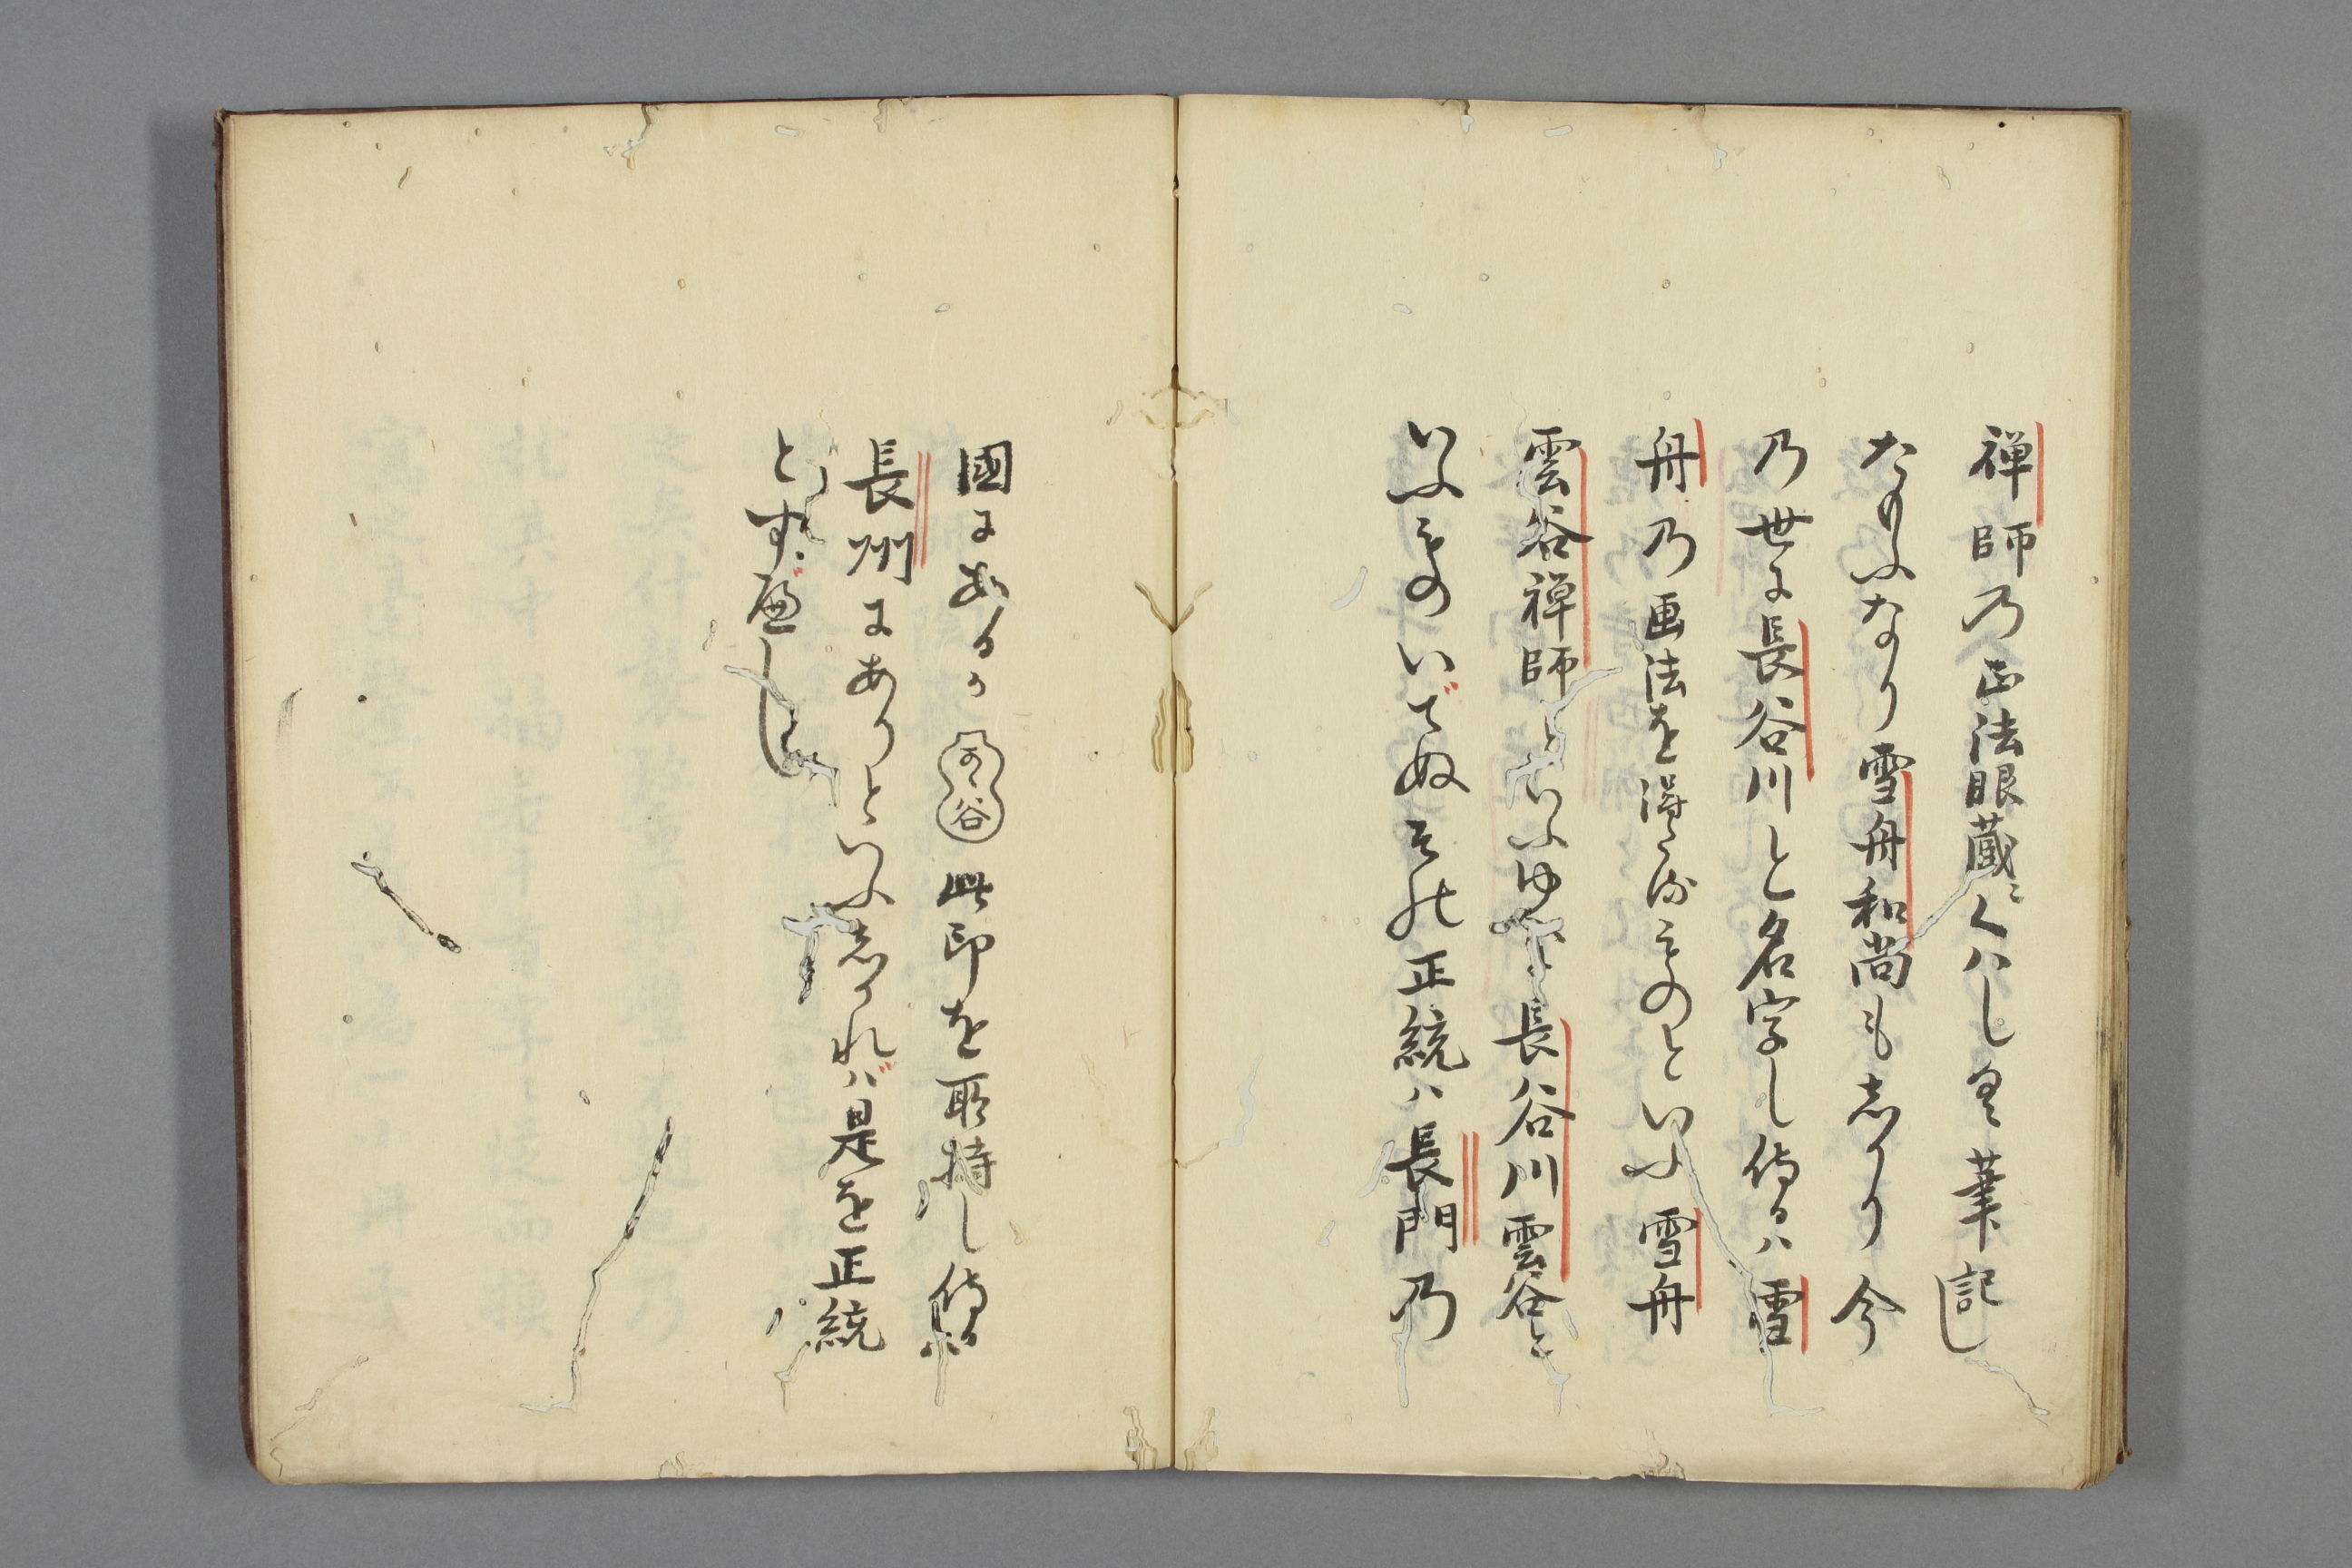 禅師乃正法眼蔵ニくハし具筆記し
たまふなり雪舟和尚も志かり今
乃世に長谷川と名字し侍るハ雪
舟乃画法を得く侍ものといふ雪舟
雲谷禅師といふゆへに長谷川雲谷と
いふものいでぬ其正統ハ長門乃
國にあるか 谷 此印を取持し侍る
長州にありといふ志かれバ是を正統
とすべし